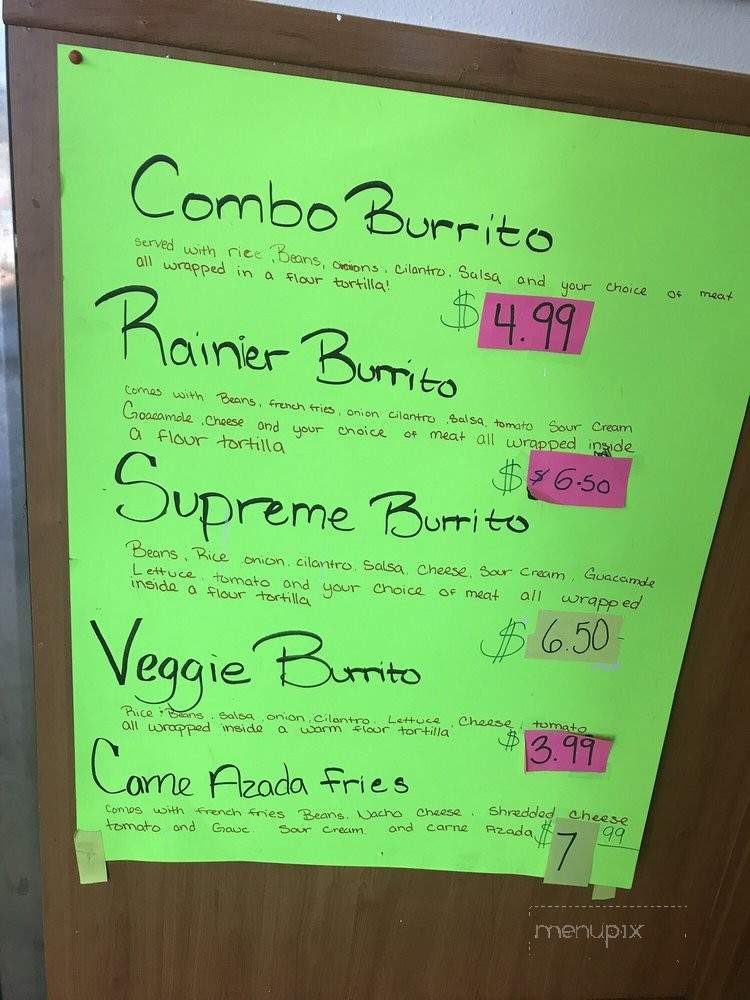 Combo Burrito
served with rice, Beans, onions, cilantro, Salsa and your choice of meat
all wrapped in a flour tortilla!
$ 4.99
Rainier Burrito
comes with Beans, french fries, onion cilantro, salsa, tomato Sour Cream
Goacamole, cheese and your choice of meat all wrapped inside
a flour tortilla
$ $6.50
Supreme Burrito
Beans, Rice onion, cilantro, Salsa, Cheese, Sour Cream, Guacamole
Lettuce, tomato and your choice of meat all wrapped
inside a flour tortilla
$ 6.50
Veggie Burrito
Rice, Beans, salsa, onion, Cilantro, Lettuce, Cheese, tomato
all wrapped inside a warm flour tortilla
$ 3.99
Carne Azada Fries
Comes with french fries Beans, Nacho Cheese, Shredded cheese
tomato and Gauc. Sour Cream, and carne Azada $7 99
menupix